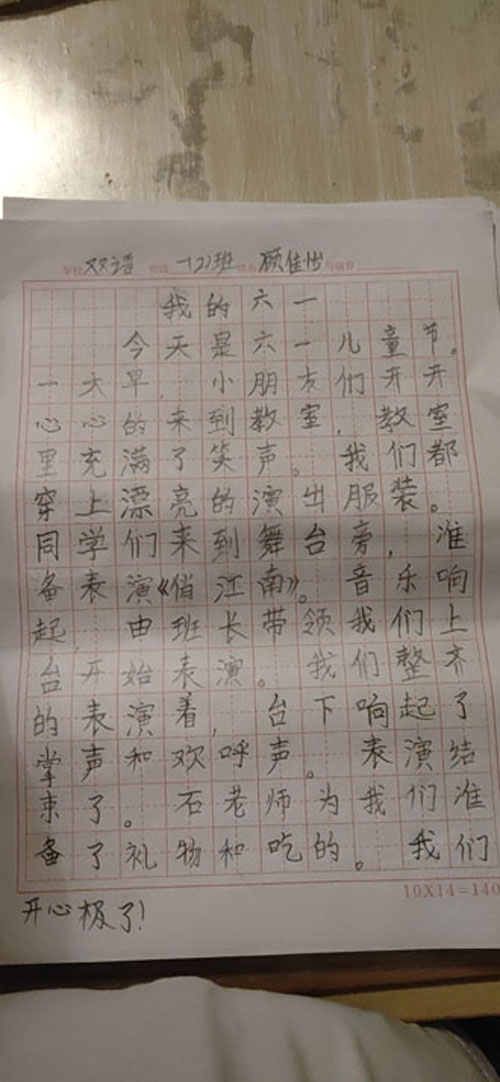 学校 双语 班级 一(2)班 姓名 顾佳怡
我的六一
今天是六一儿童节。
一大早，小朋友们开开
心心的来到教室，教室
里充满了笑声。我们都
穿上漂亮的演出服装。
同学们来到舞台旁，准
备表演《俏江南》。音乐响
起，由班长带领我们上
台开始表演。我们整齐
的表演着，台下响起了
掌声和欢呼声。表演结
束了。石老师为我们准
备了礼物和吃的。我们
10X14=140
开心极了！